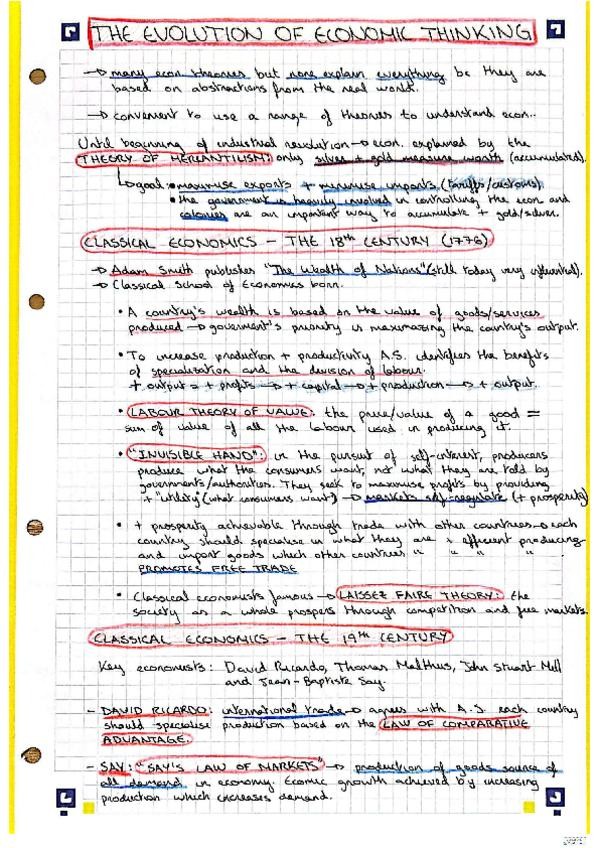 THE EVOLUTION OF ECONOMIC THINKING
→ many econ theories but none explain everything bc they are
based on abstractions from the real world.
→ convenient to use a range of theories to understand econ..
Until beginning of industrial revolution → econ. explained by the
THEORY OF MERCANTILISM: only silver + gold measure worth (accumulated).
goal: • maximise exports + minimise imports (tariffs/customs).
• the government is heavily involved in controlling the econ and
colonies are an important way to accumulate + gold/silver.
CLASSICAL ECONOMICS - THE 18th CENTURY (1776)
→ Adam Smith publishes "The Wealth of Nations" (still today very influential).
→ Classical School of Economics born.
• A country's wealth is based on the value of goods/services
produced → government's priority is maximising the country's output.
• To increase production + productivity A.S. identifies the benefits
of specialisation and the division of labour.
+ output = + profits → + capital → + production → + output.
• LABOUR THEORY OF VALUE: the price/value of a good =
sum of value of all the labour used in producing it.
• "INVISIBLE HAND": in the pursuit of self-interest, producers
produce what the consumers want, not what they are told by
governments/authorities. They seek to maximise profits by providing
+ "utility" (what consumers want) → markets self-regulate (+ prosperity)
• + prosperity achievable through trade with other countries → each
country should specialise in what they are + efficient producing
and import goods which other countries " " " "
PROMOTES FREE TRADE
• Classical economists famous → LAISSEZ FAIRE THEORY: the
society as a whole prospers through competition and free markets.
CLASSICAL ECONOMICS - THE 19th CENTURY
Key economists: David Ricardo, Thomas Malthus, John Stuart Mill
and Jean-Baptiste Say.
- DAVID RICARDO: international trade → agrees with A.S. each country
should specialise production based on the LAW OF COMPARATIVE
ADVANTAGE.
- SAY: "SAY'S LAW OF MARKETS" → production of goods source of
all demand in economy. Ecomic growth achieved by increasing
production which increases demand.